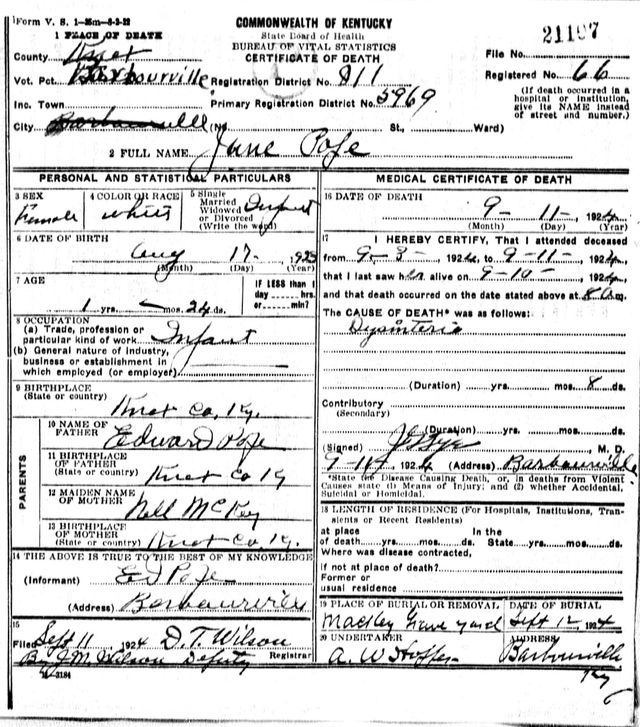 Form V. S. 1—35m—8-2-22
COMMONWEALTH OF KENTUCKY
State Board of Health
BUREAU OF VITAL STATISTICS
CERTIFICATE OF DEATH
1 PLACE OF DEATH
County Knox
Vot. Pct. Barbourville Registration District No. 811
Inc. Town Primary Registration District No. 5969
City Barbourville (No. St., Ward)
File No. 21197
Registered No. 66
(If death occurred in a
hospital or institution,
give its NAME instead
of street and number.)
2 FULL NAME Jane Pope
PERSONAL AND STATISTICAL PARTICULARS
3 SEX
Female
4 COLOR OR RACE
white
5 Single
Married
Widowed
or Divorced
(Write the word)
Infant
6 DATE OF BIRTH
Aug 17 - , 1923
(Month) (Day) (Year)
7 AGE
1 yrs. — mos. 24 ds.
IF LESS than 1
day hrs.
or min?
8 OCCUPATION
(a) Trade, profession or
particular kind of work Infant
(b) General nature of industry,
business or establishment in
which employed (or employer)
9 BIRTHPLACE
(State or country)
Knox Co, Ky.
PARENTS
10 NAME OF
FATHER
Edward Pope
11 BIRTHPLACE
OF FATHER
(State or country) Knox Co Ky
12 MAIDEN NAME
OF MOTHER
Nell McKey
13 BIRTHPLACE
OF MOTHER
(State or country) Knox Co, Ky.
14 THE ABOVE IS TRUE TO THE BEST OF MY KNOWLEDGE
(Informant) Ed Pope
(Address) Barbourville
15
Filed Sept 11, 1924 D. T. Wilson
Registrar
By J. M. Wilson Deputy
-3184
MEDICAL CERTIFICATE OF DEATH
16 DATE OF DEATH
9- 11- , 1924
(Month) (Day) (Year)
17 I HEREBY CERTIFY, That I attended deceased
from 9-3-, 1924, to 9-11-, 1924,
that I last saw her alive on 9-10-, 1924,
and that death occurred on the date stated above at 8 a.m.
The CAUSE OF DEATH* was as follows:
Dysinteria
(Duration) yrs. mos. 8 ds.
Contributory
(Secondary)
(Duration) yrs. mos. ds.
(Signed) M. D.
9-11-, 1924 (Address) Barbourville
*State the Disease Causing Death, or, in deaths from Violent
Causes state (1) Means of Injury; and (2) whether Accidental,
Suicidal or Homicidal.
18 LENGTH OF RESIDENCE (For Hospitals, Institutions, Tran-
sients or Recent Residents)
at place In the
of death yrs. mos. ds. State yrs. mos. ds.
Where was disease contracted,
if not at place of death?
Former or
usual residence
19 PLACE OF BURIAL OR REMOVAL
Grave yard
DATE OF BURIAL
Sept 12 1924
20 UNDERTAKER
A. W.
ADDRESS
Barbourville
Ky